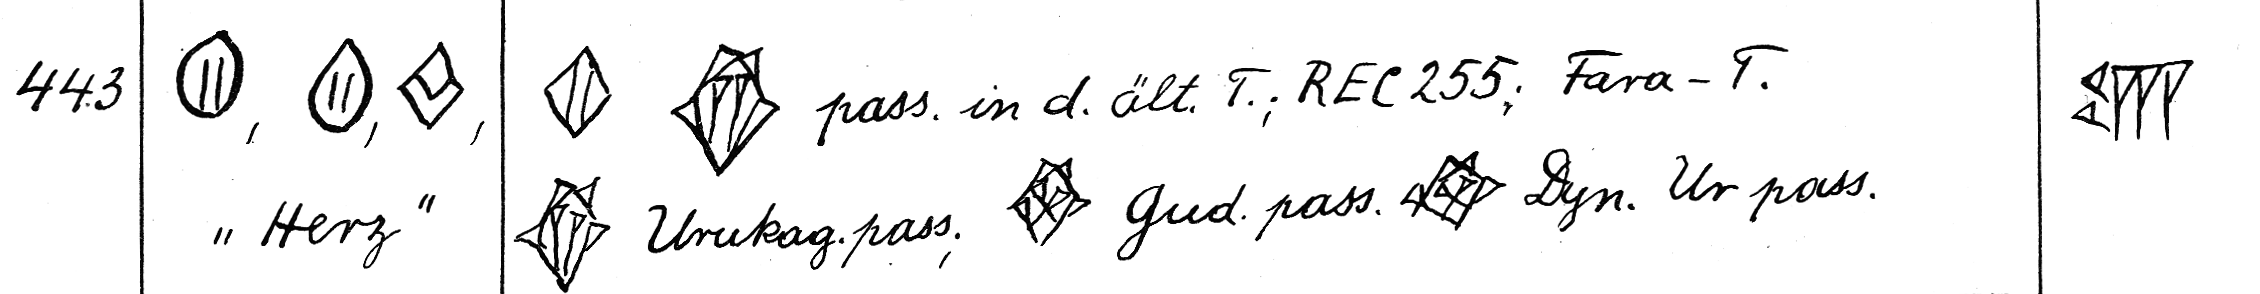 443 , , , pass. in d. ält. T.; REC 255; Fara-T.
„Herz“ Urukag. pass., Gud. pass. Dyn. Ur pass.